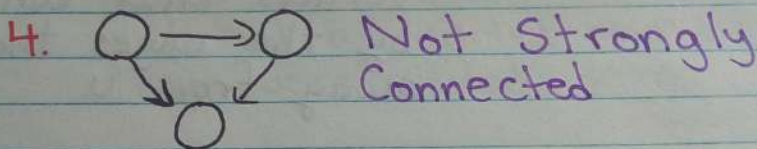 4. Not Strongly
Connected